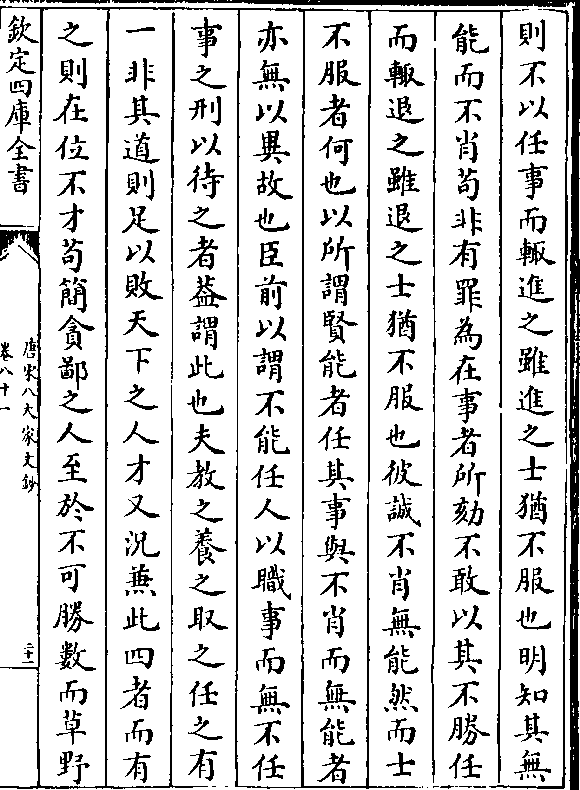 則不以任事而輙進之雖進之士猶不服也明知其無
能而不肖苟非有罪為在事者所劾不敢以其不勝任
而輙退之雖退之士猶不服也彼誠不肖無能然而士
不服者何也以所謂賢能者任其事與不肖而無能者
亦無以異故也臣前以謂不能任人以職事而無不任
事之刑以待之者葢謂此也夫教之養之取之任之有
一非其道則足以敗天下之人才又况兼此四者而有
之則在位不才苟簡貪鄙之人至於不可勝數而草野
欽定四庫全書
唐宋八大家文鈔
卷八十一